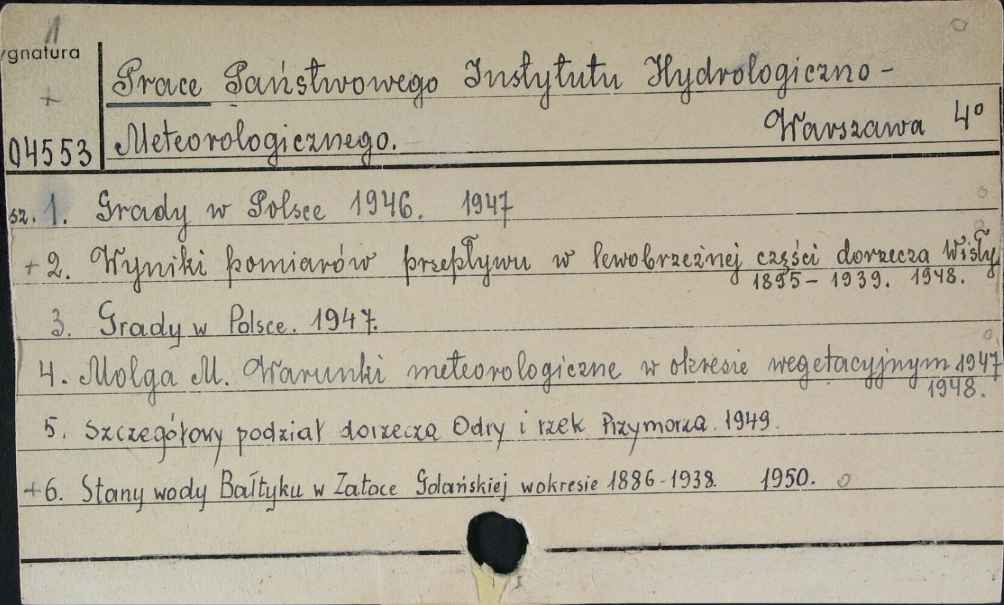 1
ygnatura
+
04553
Prace Państwowego Instytutu Hydrologiczno-
Meteorologicznego. Warszawa 4°
sz. 1. Grady w Polsce 1946. 1947
+2. Wyniki pomiarów przepływu w lewobrzeżnej części dorzecza Wisły
1895-1939. 1948.
3. Grady w Polsce. 1947.
4. Molga M. Warunki meteorologiczne w okresie wegetacyjnym 1947
1948.
5. Szczegółowy podział dorzecza Odry i rzek Przymorza. 1949.
+6. Stany wody Bałtyku w Zatoce Gdańskiej wokresie 1886-1938. 1950. o